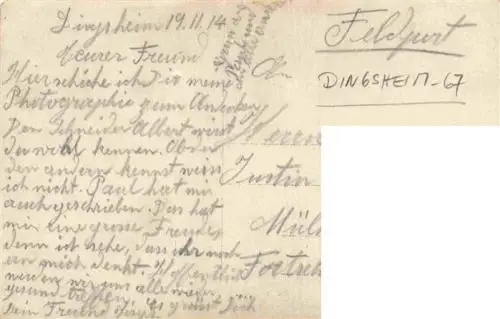 Dingsheim 19.11.14.
Teurer Freund
Hier schicke ich Dir meine
Photographie zum Andenken
Den Schneider Albert wirst
du wohl kennen. Ob du
den andern kennst weiss
ich nicht. Paul hat mir
auch geschrieben. Das hat
mir eine grosse Freude,
denn ich sehe, dass ihr noch
an mich denkt. Hoffentlich
werden wir uns alle wieder
gesund treffen. Es grüsst Dich
Dein Freund
Feldpost
DINGSHEIM-67
An
Herrn
Justin
Mül